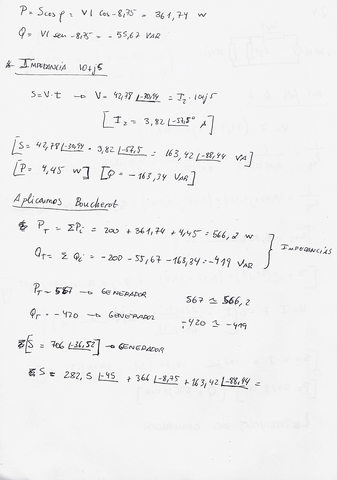 P = S cos φ = VI cos -8,75 = 361,74 W
Q = VI sen -8,75 = -55,67 VAR
Impedancia 10+j5
S=V·I → V = 42,78 |-30,94 = I₂ · 10+j5
[I₂ = 3,82 |-57,5° A]
[S = 42,78 |-30,94 · 3,82 |-57,5 = 163,42 |-88,44 VA]
[P = 4,45 W] [Q = -163,34 VAR]
Aplicamos Boucherot
P_T = ΣPi = 200 + 361,74 + 4,45 = 566,2 W
Q_T = Σ Qi = -200 -55,67 -163,34 = -419 VAR } IMPEDANCIAS
P_T = 567 → GENERADOR 567 ≃ 566,2
Q_T = -420 → GENERADOR -420 ≃ -419
[S = 706 |-36,52] → GENERADOR
S = 282,5 |-45 + 366 |-8,75 + 163,42 |-88,44 =